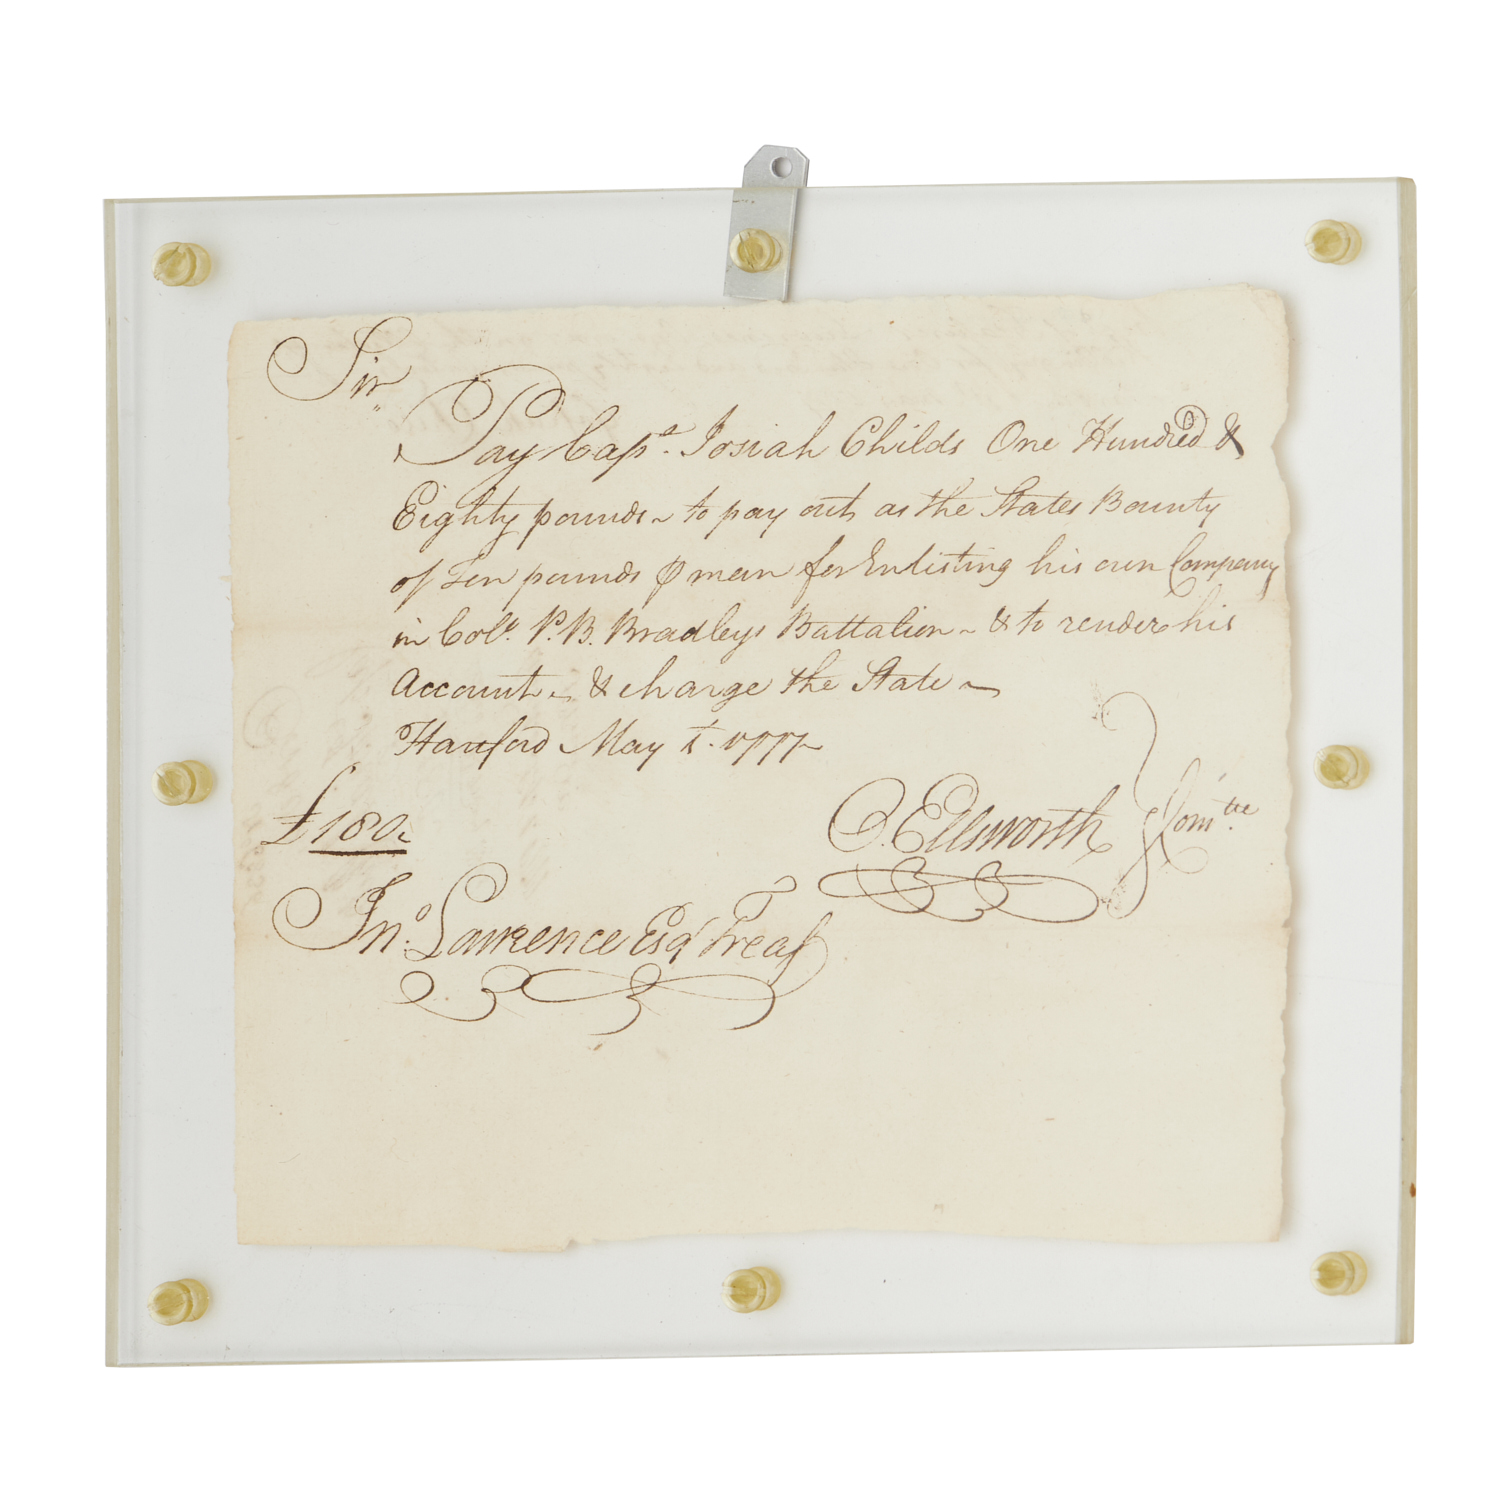 Sir
Pay Capt. Josiah Childs One Hundred &
Eighty pounds ~ to pay out as the States Bounty
of Ten pounds ⅌ man for Enlisting his own Company
in Colo. P. B. Bradleys Battalion ~ & to render his
Account ~ & charge the State ~
Hartford May 1. 1777
£180..
O. Ellsworth } Comtee.
Jno. Lawrence Esqr Treasr